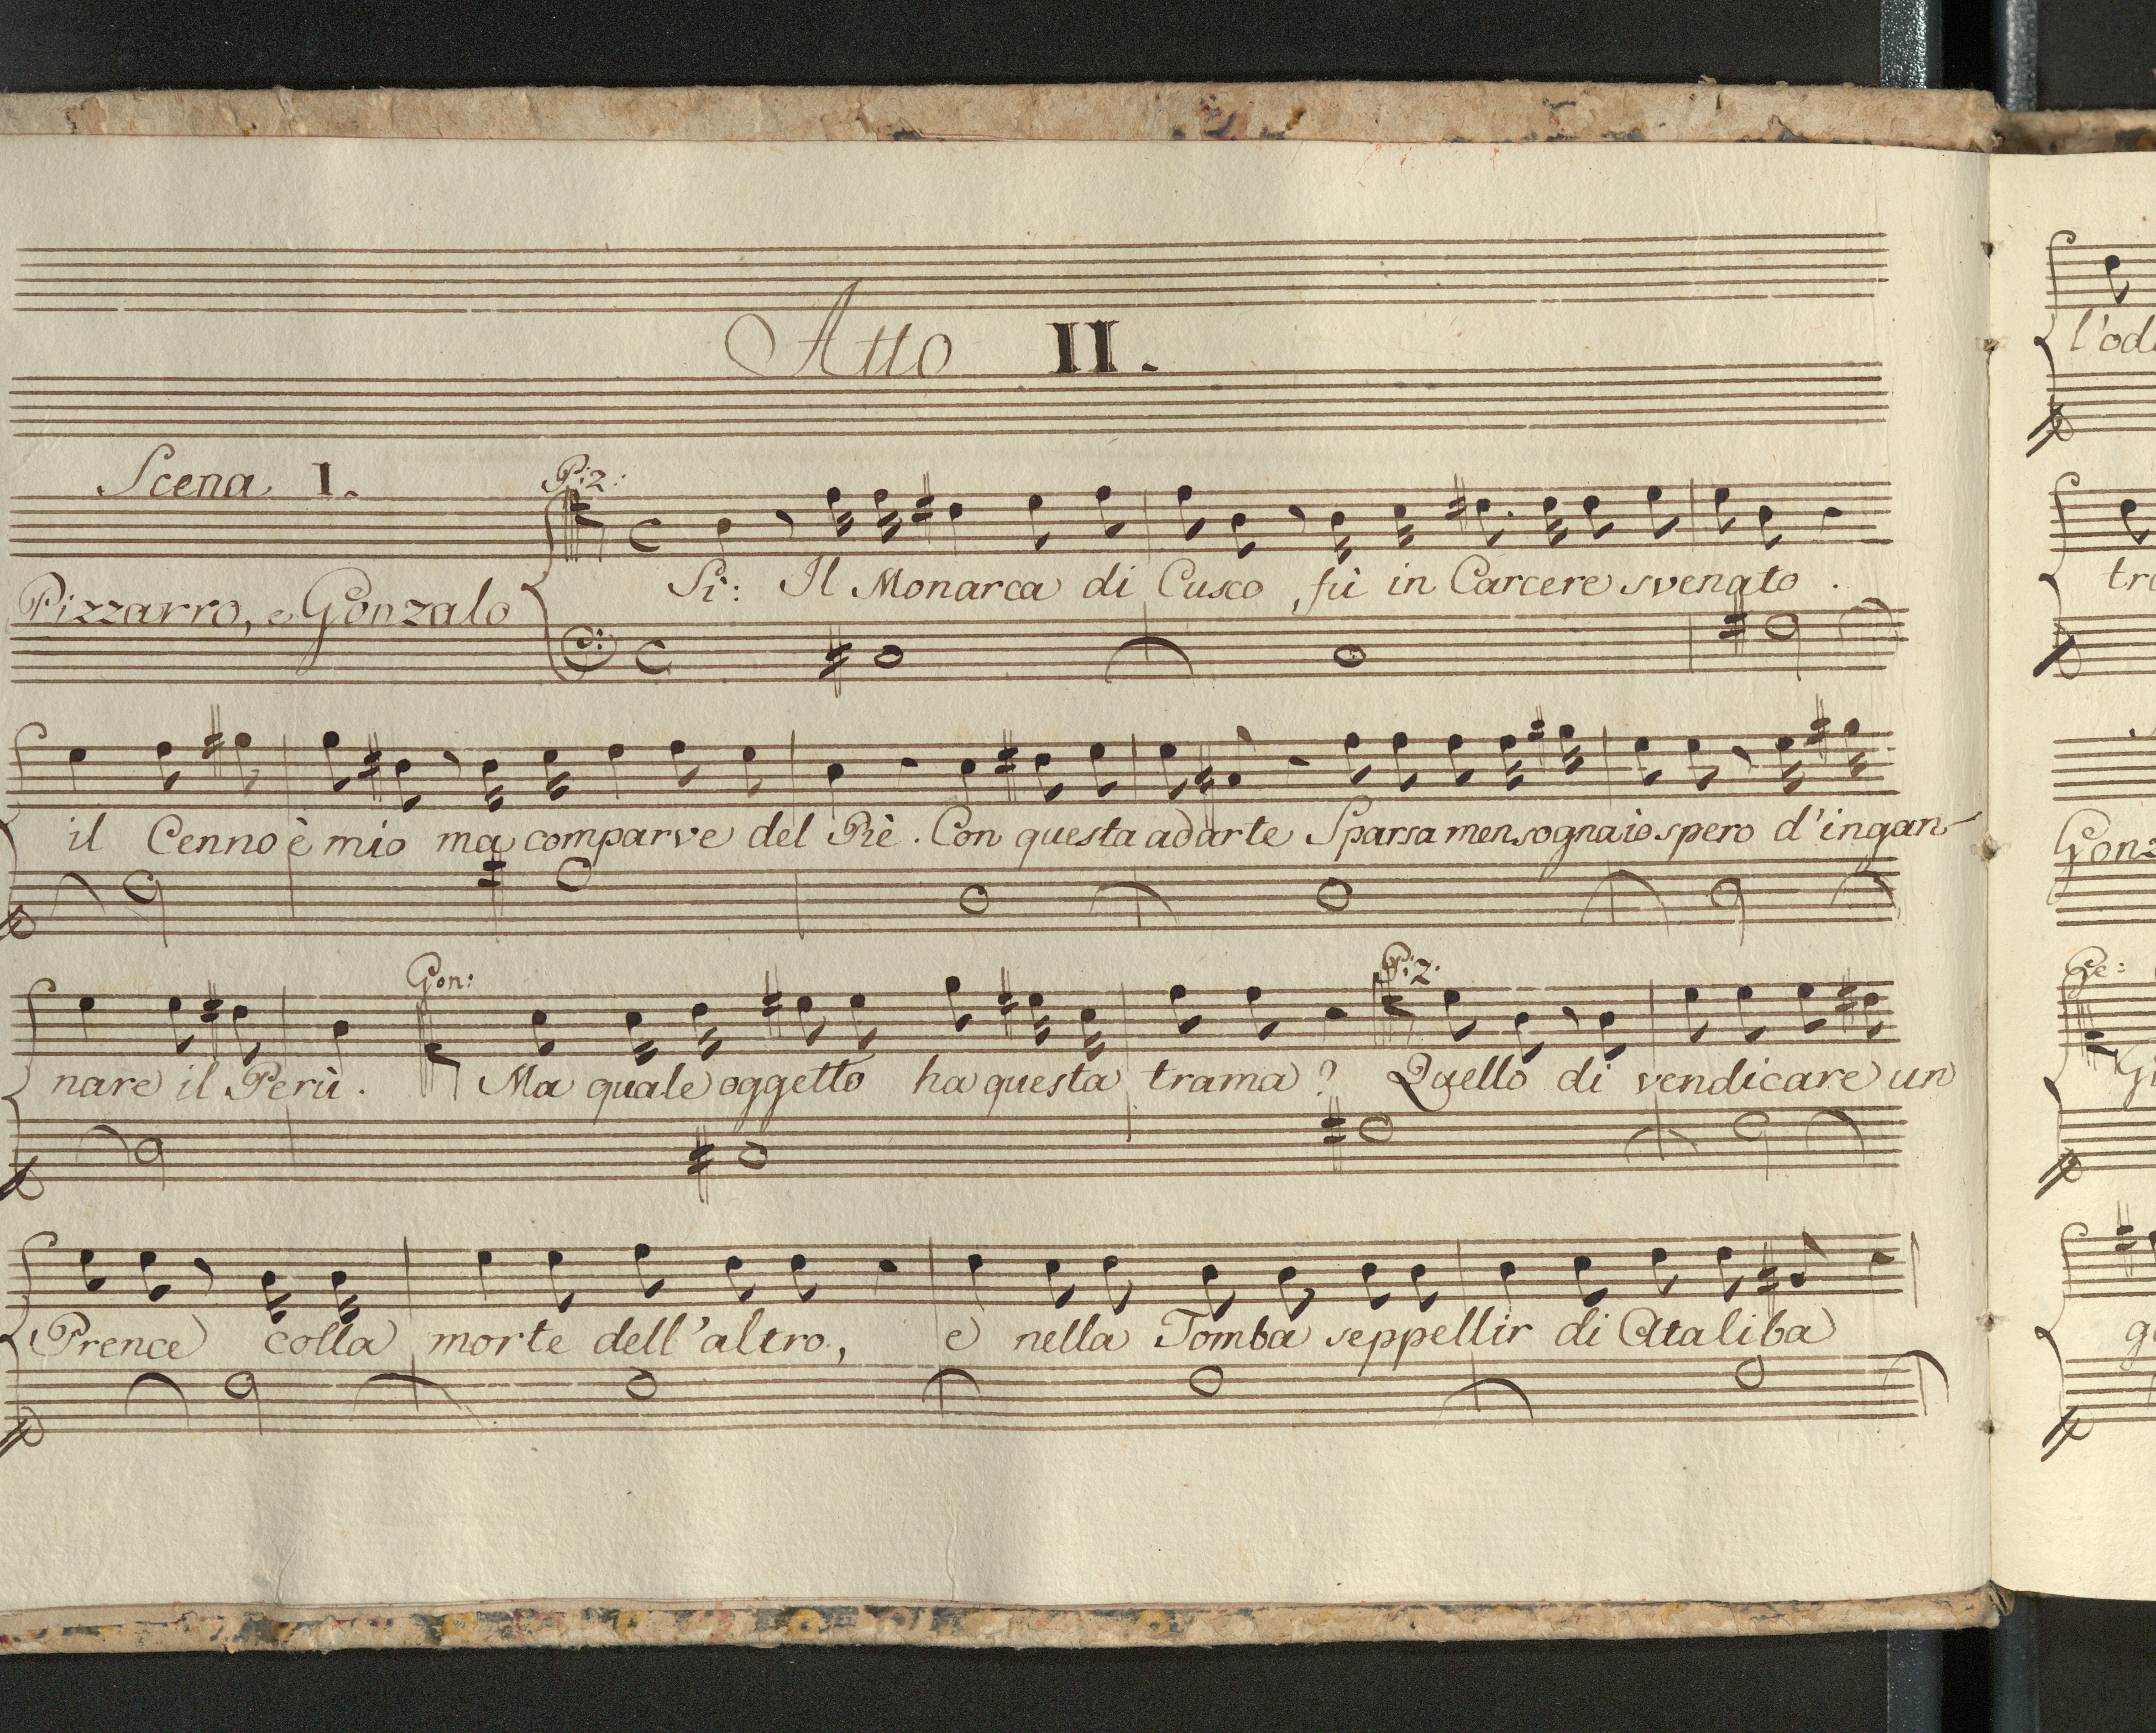 Atto II.
Scena I.
Piz:
Sì: Il Monarca di Cusco, fù in Carcere svenato.
Pizzarro, e Gonzalo
il Cenno è mio ma comparve del Rè. Con questa ad arte Sparsa mensogna io spero d'ingan-
Gon:
Piz:
nare il Perù. Ma quale oggetto ha questa trama? Quello di vendicare un
Prence colla morte dell'altro, e nella Tomba seppellir di Ataliba
l'od
tra
Gonz
Ge: